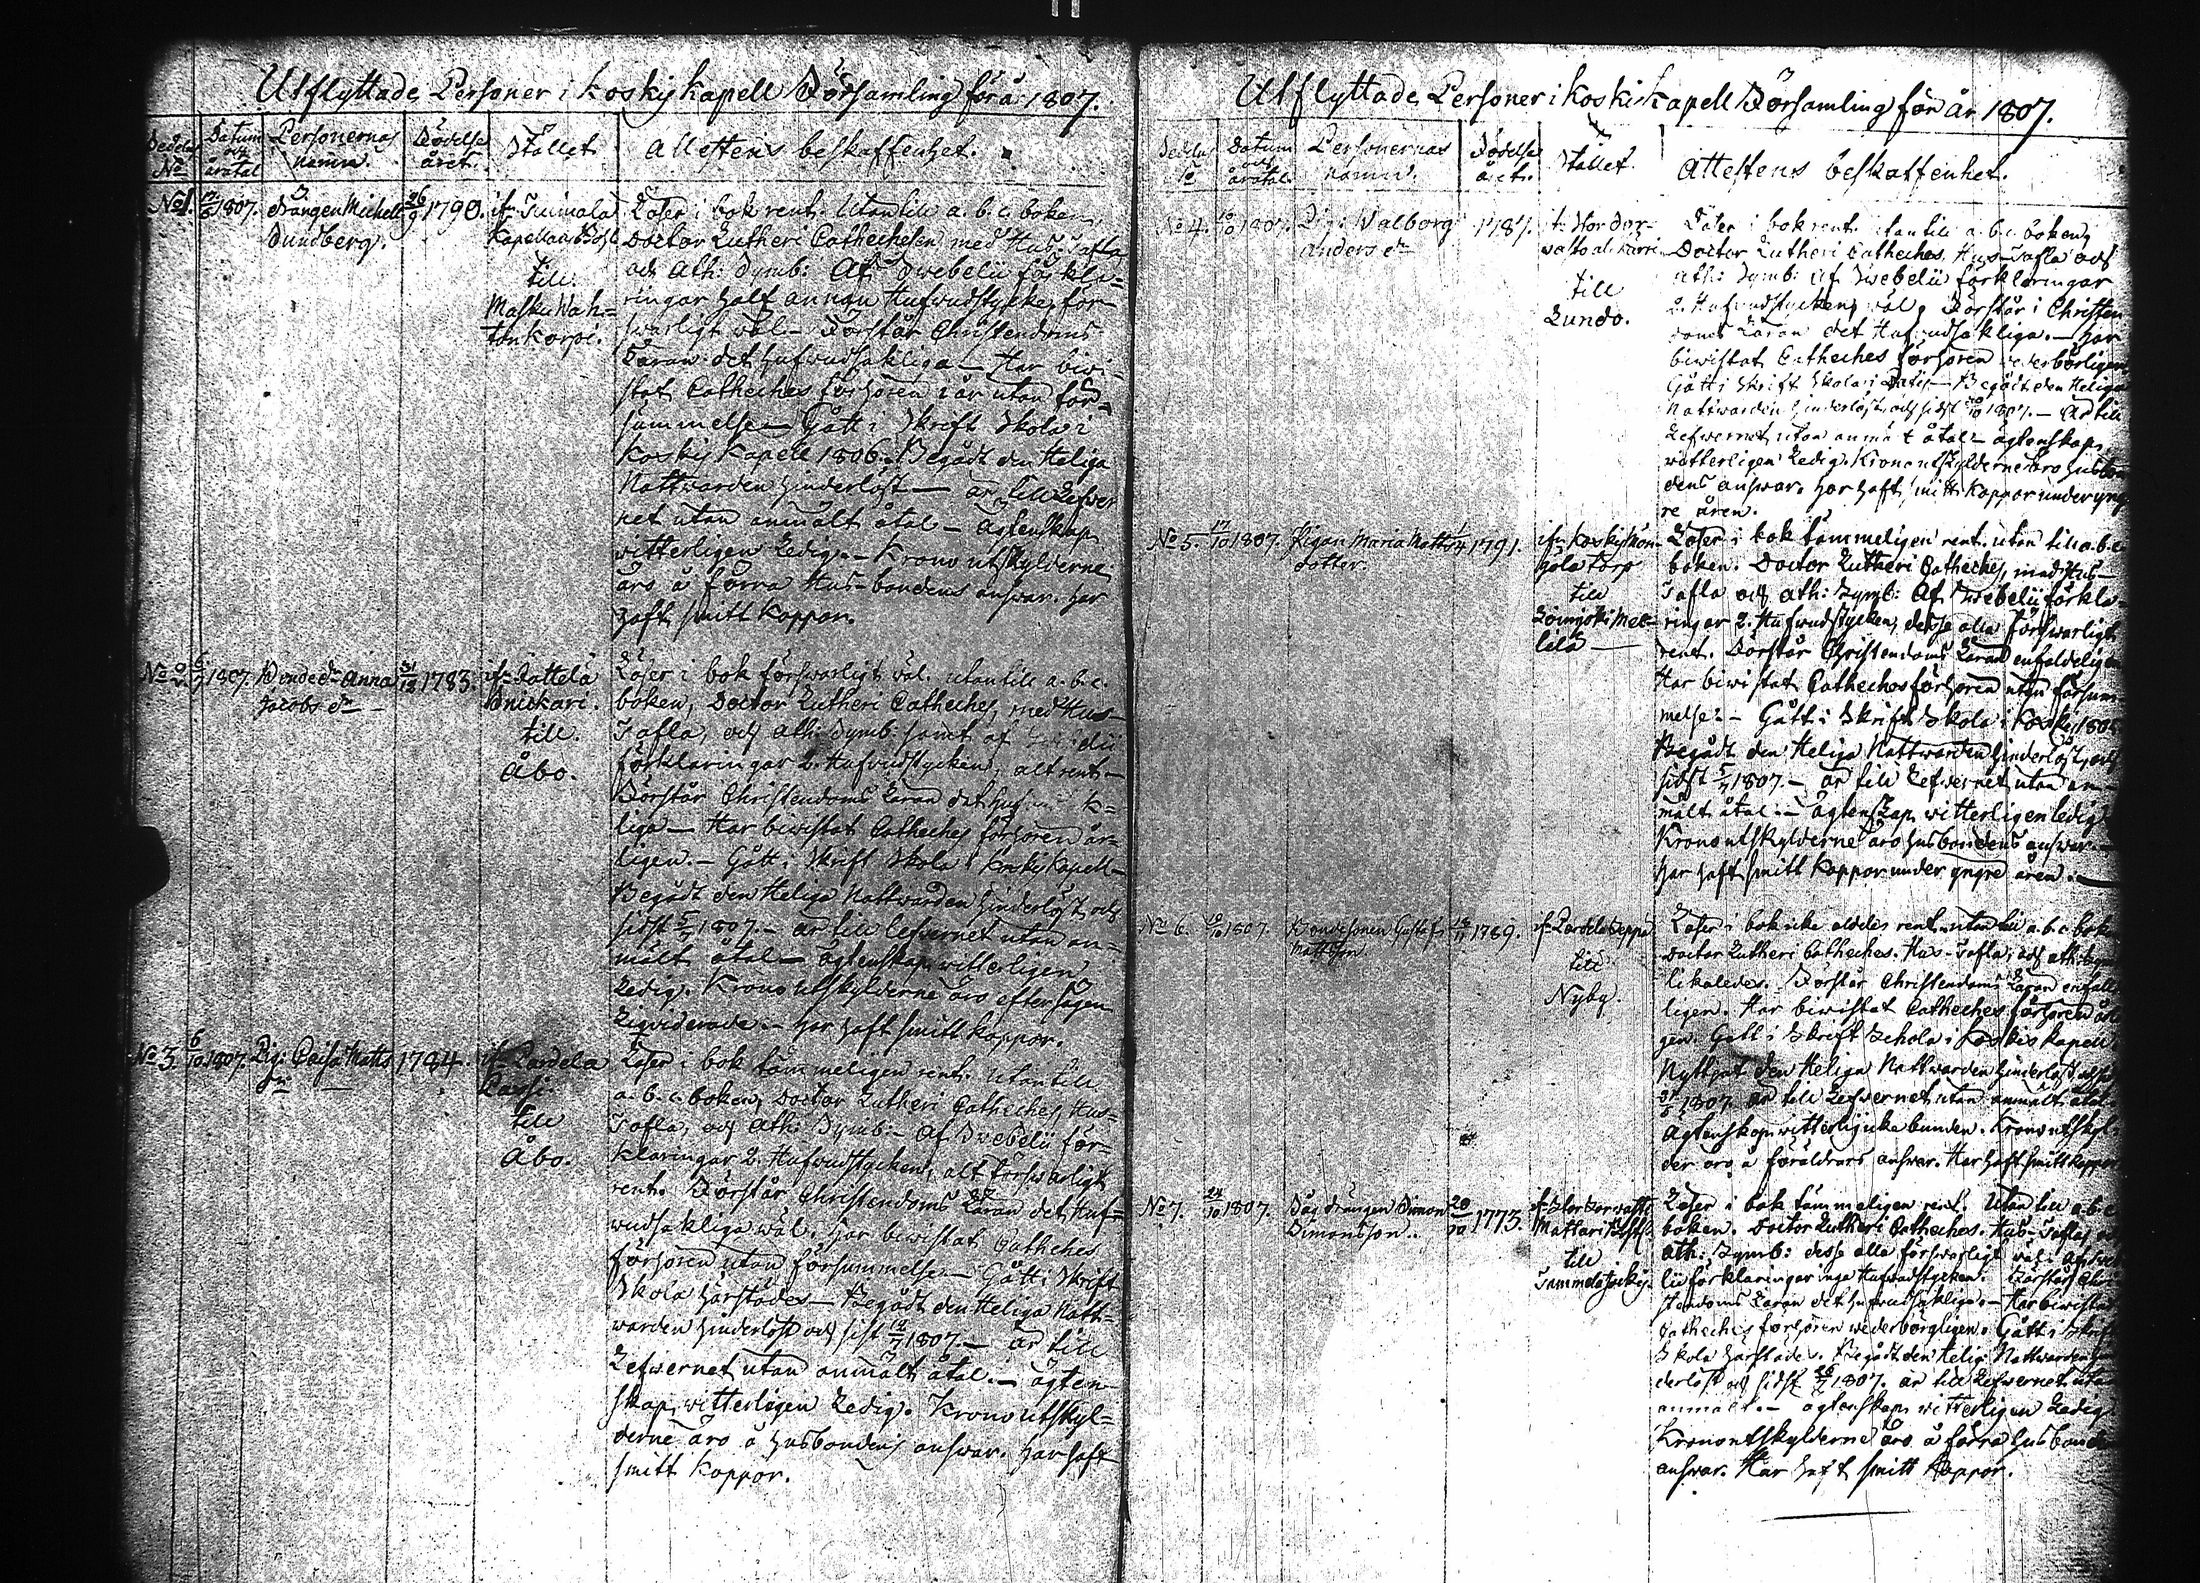 Utflyttade Personer i Koskis Kapell Församling för å: 1807.
Sedelns No
Datum och åratal
Personernas namn.
Födelse året.
Stället
Attestens beskaffenhet.
No 1. 1807. Drängen Michell 26/9 1790.
Sundberg.
ifr: Tuimala
Kapellans Bohl
till
Masku Wah=
tonkorpi.
Läser i bok rent. Utan till a. b. c. boken,
Doctor Lutheri Cathechesen med Hus Tafla
och Ath: Symb: Af Swebelii förkla=
ringar half annan Hufwudstycke, för=
swarligt wäl — Förstår Christendoms
Läran det hufwudsakliga — Har biwi=
stat Cathechesförhören i år utan för=
summelse — Gått i Skrift Skola i
Koskis Kapell 1806. Begådt den Heliga
Nattwarden hinderlöst — är till Lefwer
net utan anmält åtal — ägtenskap
witterligen Ledig — Krono utskylderne
äro å förra Husbondens answar. har
haft smitt Koppor.
No 2. 1807. Bonded:r Anna 31/12 1783.
Jacobs d:r —
ifr: Sottela
Snickari.
till
Åbo.
Läser i bok förswarligt wäl. utan till a. b. c.
boken, Doctor Lutheri Catheches, med Hus
Tafla, och Ath: Symb: samt af
förklaringar 2. Hufwudstycken, alt rent —
Förstår Christendoms Läran det
liga — Har biwistat Catheches förhören år=
ligen. — Gått i Skrift Skola i Koskis Kapell —
Begådt den Heliga Nattwarden hinderlöst, och
sidst 5/7 1807. — är till lefwernet utan an=
mält åtal — ägtenskap witterligen
Ledig. Krono utskylderne äro efter sägen
Liqviderade — har haft smitt koppor.
No 3. 6/10 1807. Pig: Caisa Matts 1784.
d:r —
ifr: Pardela
till
Åbo.
Läser i bok tämmeligen rent. Utan till
a. b. c. boken, Doctor Lutheri Catheches, Hus=
Tafla, och Ath: Symb: — Af Swebelii för=
klaringar 2. Hufwudstycken, alt förswarligt
rent. Förstår Christendoms Läran det Huf=
wudsakliga wäl. har biwistat Catheches
förhören utan försummelse — Gått i Skrift
Skola härstädes — Begådt den Heliga Natt=
warden hinderlöst och sist 1807. — är till
Lefwernet utan anmält åtal. — ägten=
skap, witterligen Ledig. Krono utskyl=
derne äro å husbondens answar. har haft
smitt Koppor.
Utflyttade Personer i Koskis Kapell Församling för år 1807.
Sedelns No
Datum och åratal
Personernas namn.
Födelse året.
Stället.
Attestens beskaffenhet.
No 4. 10/10 1807. Pig: Walborg 1787.
Anders d:r
till
Lundo.
Läser i bok rent. utan till a. b. c. boken,
Doctor Lutheri Catheches. Hus-Tafla och
Ath: Symb: af Swebelii förklaringar
2. Hufwudstycken, wäl, Förstår i Christen
doms Läran det Hufwudsakliga. — har
biwistat Catheches förhören wederbörligen
Gått i Skrift Skola — Begådt den Heliga
Nattwarden hinderlöst och sidst 1807. — Är till
Lefwernet utan anmält åtal — ägtenskap
witterligen Ledig. Kronoutskylderne äro husbon
dens answar. har haft smitt Koppor under yng
re åren.
No 5. 17/10 1807. Pigan Maria Matts 1791.
dotter.
ifr: Koskis
torp
till
Loimjoki Mel=
lilä —
Läser i bok tämmeligen rent. utan till a. b. c.
boken. Doctor Lutheri Catheches, med Hus—
Tafla och Ath: Symb: Af Swebelii förkla=
ringar 2. Hufwudstycken, desse alla förswarligt
rent. Förstår Christendoms Läran enfaldeligen
Har biwistat Cathechesförhören utan försum
melse. — Gått i Skrift Skola i
Begådt den Heliga Nattwarden hinderlöst, och
sidst 5/7 1807. — är till Lefwernet utan an—
mält åtal. — ägtenskap witterligen ledig
Kronoutskylderne äro husbondens answar. —
har haft smitt Koppor under yngre åren. —
No 6. 1807. Bondesonen Gustaf 1789.
Mattsson
ifr: Pardela Seppä
till
Nyby.
Läser i bok icke aldeles rent, utan till a. b. c. bok
Doctor Lutheri Catheches. Hus-Tafla, och Ath:
likaledes. Förstår Christendoms Läran enfalde
ligen. Har biwistat Catheches förhören
gen. Gått i Skrift Schola i Koskis Kapell.
Nyttjat den Heliga Nattwarden hinderlöst
1807. är till Lefwernet utan anmält åtal
Ägtenskap witterlig icke bunden. Kronoutskyl
der äro å föräldrars answar. Har haft smitt koppor
No 7. 24/10 1807. Simon 28/10 1773.
Simonsson.
till
Läser i bok tämmeligen rent. Utan till a. b. c.
boken. Doctor Lutheri Catheches. Hus-Tafla,
Ath: Symb: desse alla förswarligt wäl.
lii förklaringar inga Hufwudstycken. Förstår Chri
stendoms Läran det hufwudsakliga. — Har biwista
Catheches förhören wederbörligen. Gått i Skrift
Skola härstädes. Begådt den Helig: Nattwarden
derlöst och sidst 1807. är till Lefwernet utan
anmält. — ägtenskap witterligen Ledig
Kronoutskylderne äro å förra husbonde
answar. Har haft smitt Koppor.